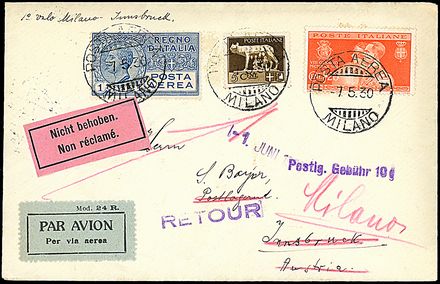 1º volo Milano - Innsbruck.
POSTA AEREA
-7.5.30
MILANO
REGNO D'ITALIA
POSTA AEREA
MILANO
POSTE ITALIANE
POSTA AEREA
-7.5.30
MILANO
Nicht behoben.
Non réclamé.
Herrn
1. JUNI
S. Bayer,
Postlag. Gebühr 10g
Postlagernd
RETOUR
Milano
Innsbruck
Austria
Mod. 24 R.
PAR AVION
Per via aerea